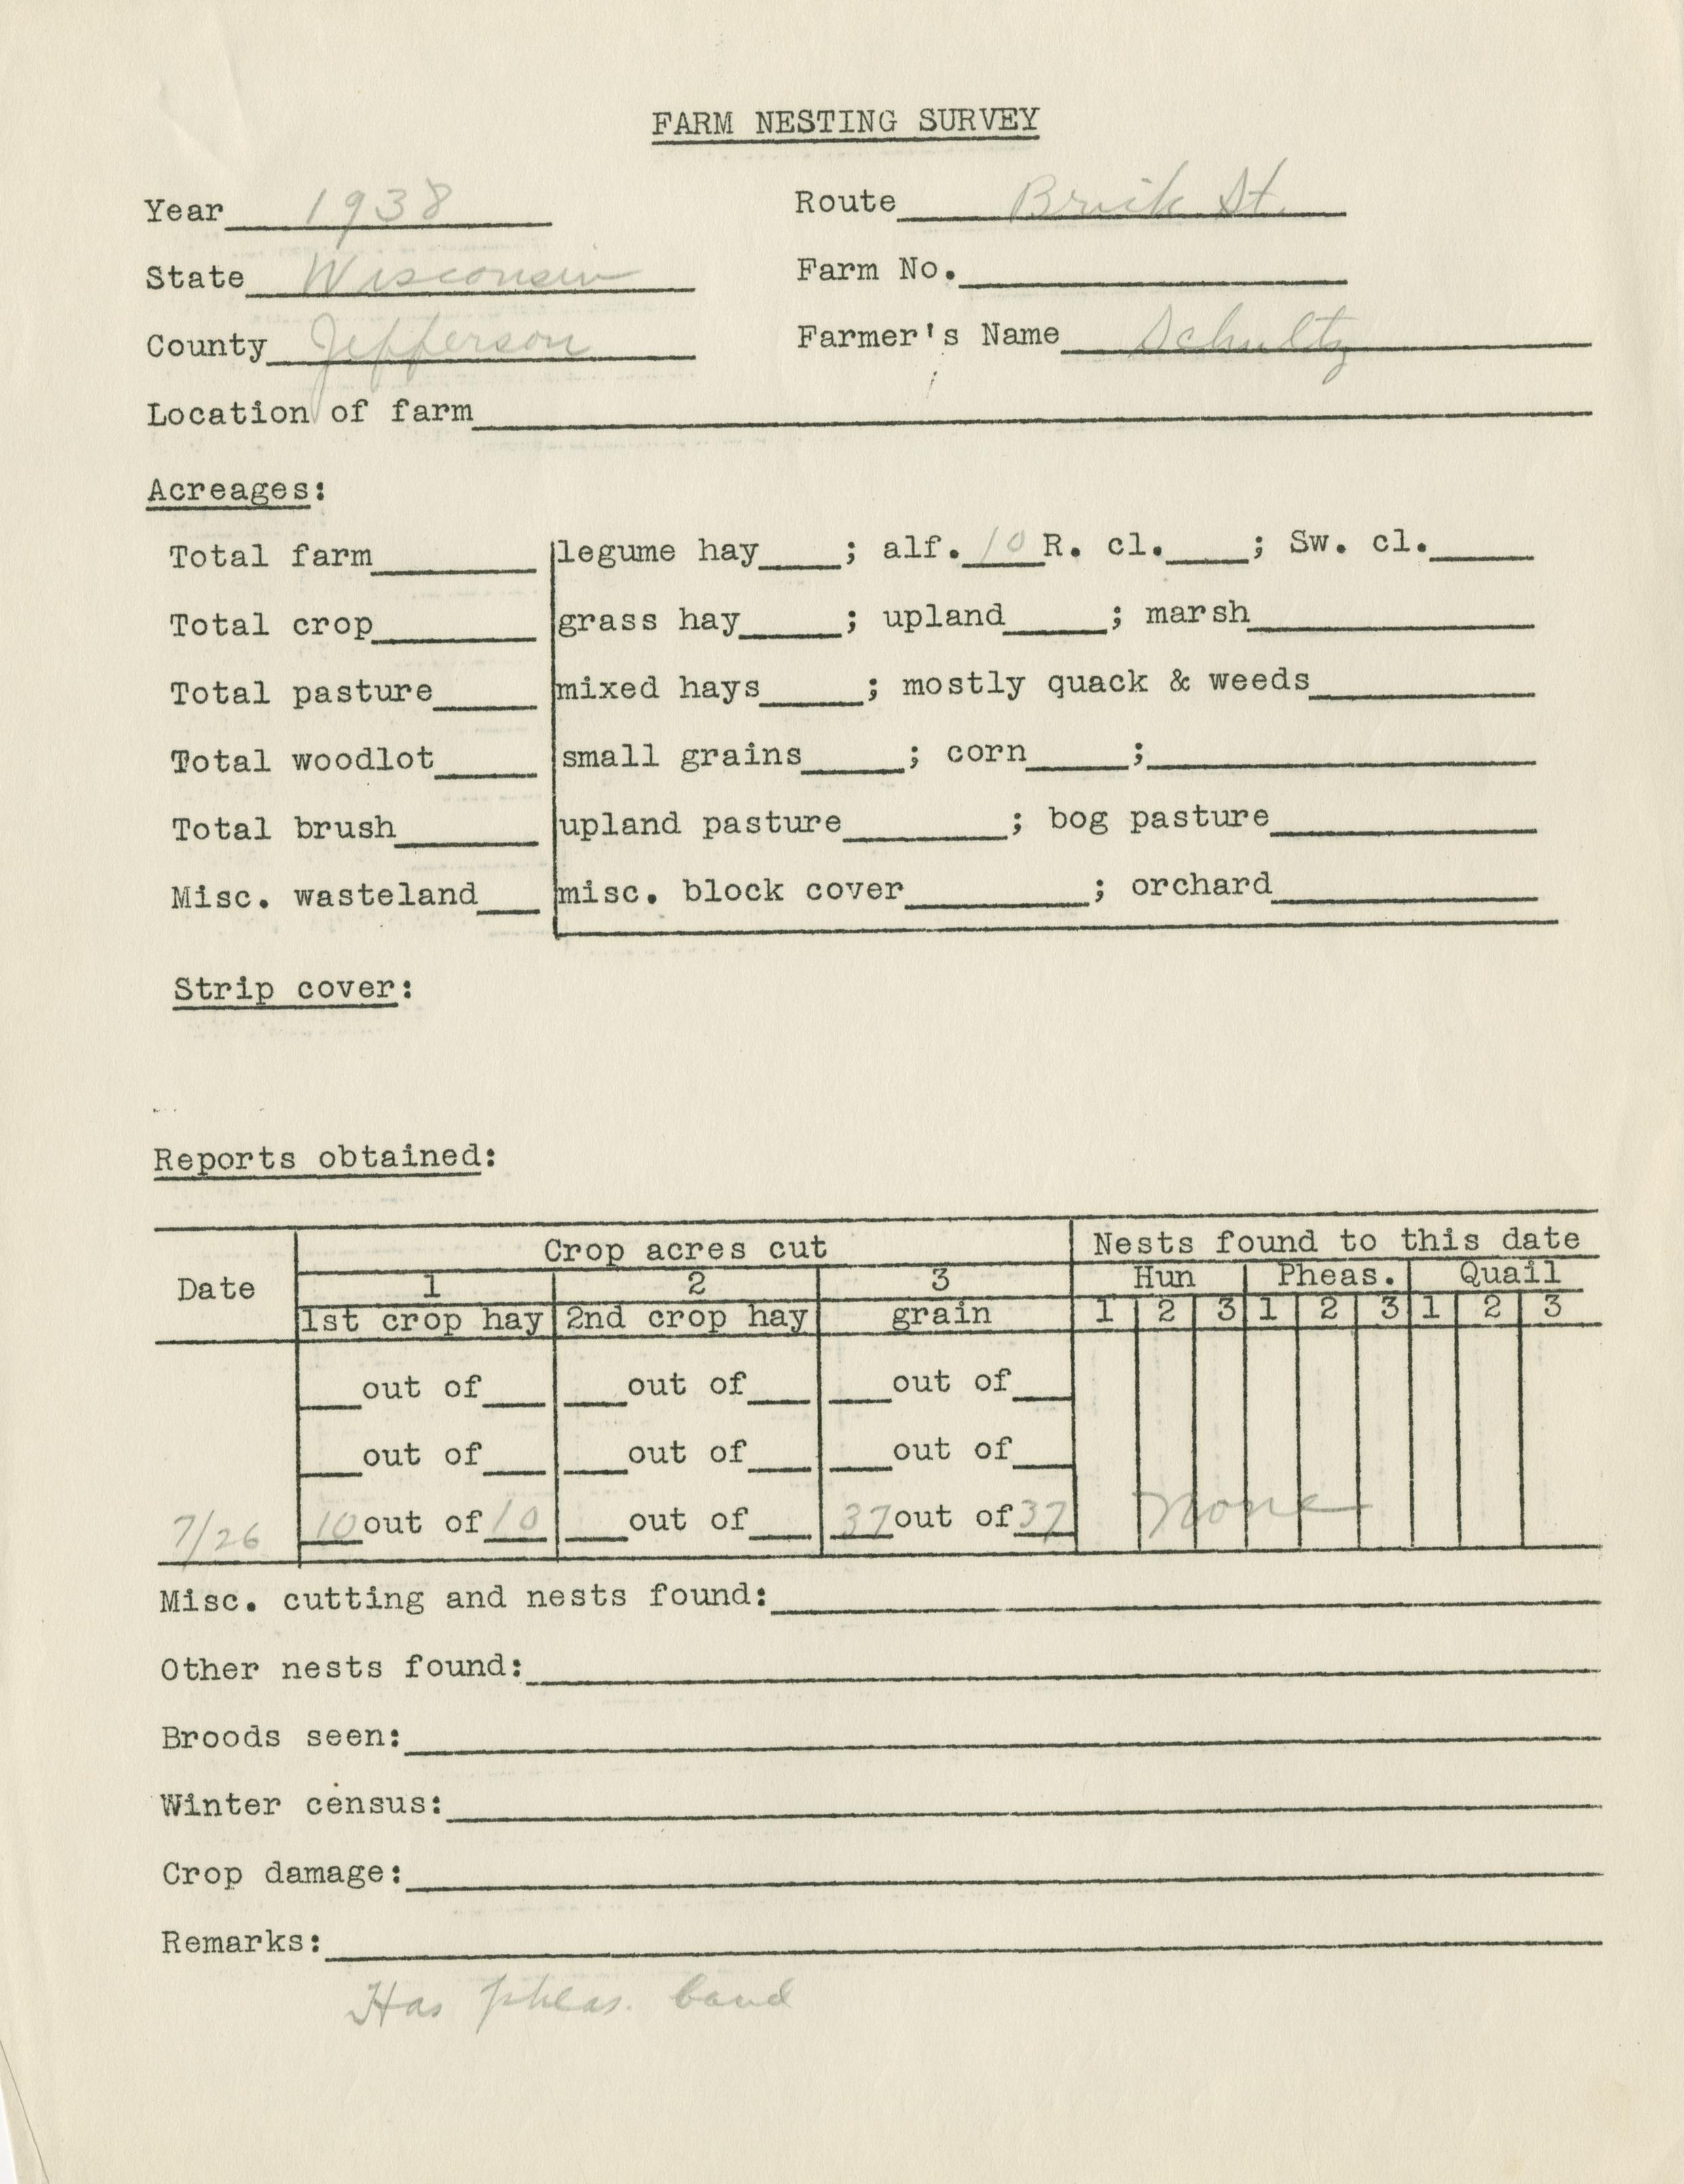 FARM NESTING SURVEY
Year 1938 Route Brick St.
State Wisconsin Farm No.
County Jefferson Farmer's Name Schultz
Location of farm
Acreages:
Total farm legume hay ; alf. 10 R. cl. ; Sw. cl.
Total crop grass hay ; upland ; marsh
Total pasture mixed hays ; mostly quack & weeds
Total woodlot small grains ; corn ;
Total brush upland pasture ; bog pasture
Misc. wasteland misc. block cover ; orchard
Strip cover:
Reports obtained:
Crop acres cut Nests found to this date
Date 1 2 3 Hun Pheas. Quail
1st crop hay 2nd crop hay grain 1 2 3 1 2 3 1 2 3
out of out of out of
out of out of out of
7/26 10 out of 10 out of 37 out of 37 none
Misc. cutting and nests found:
Other nests found:
Broods seen:
Winter census:
Crop damage:
Remarks:
Has pheas. band